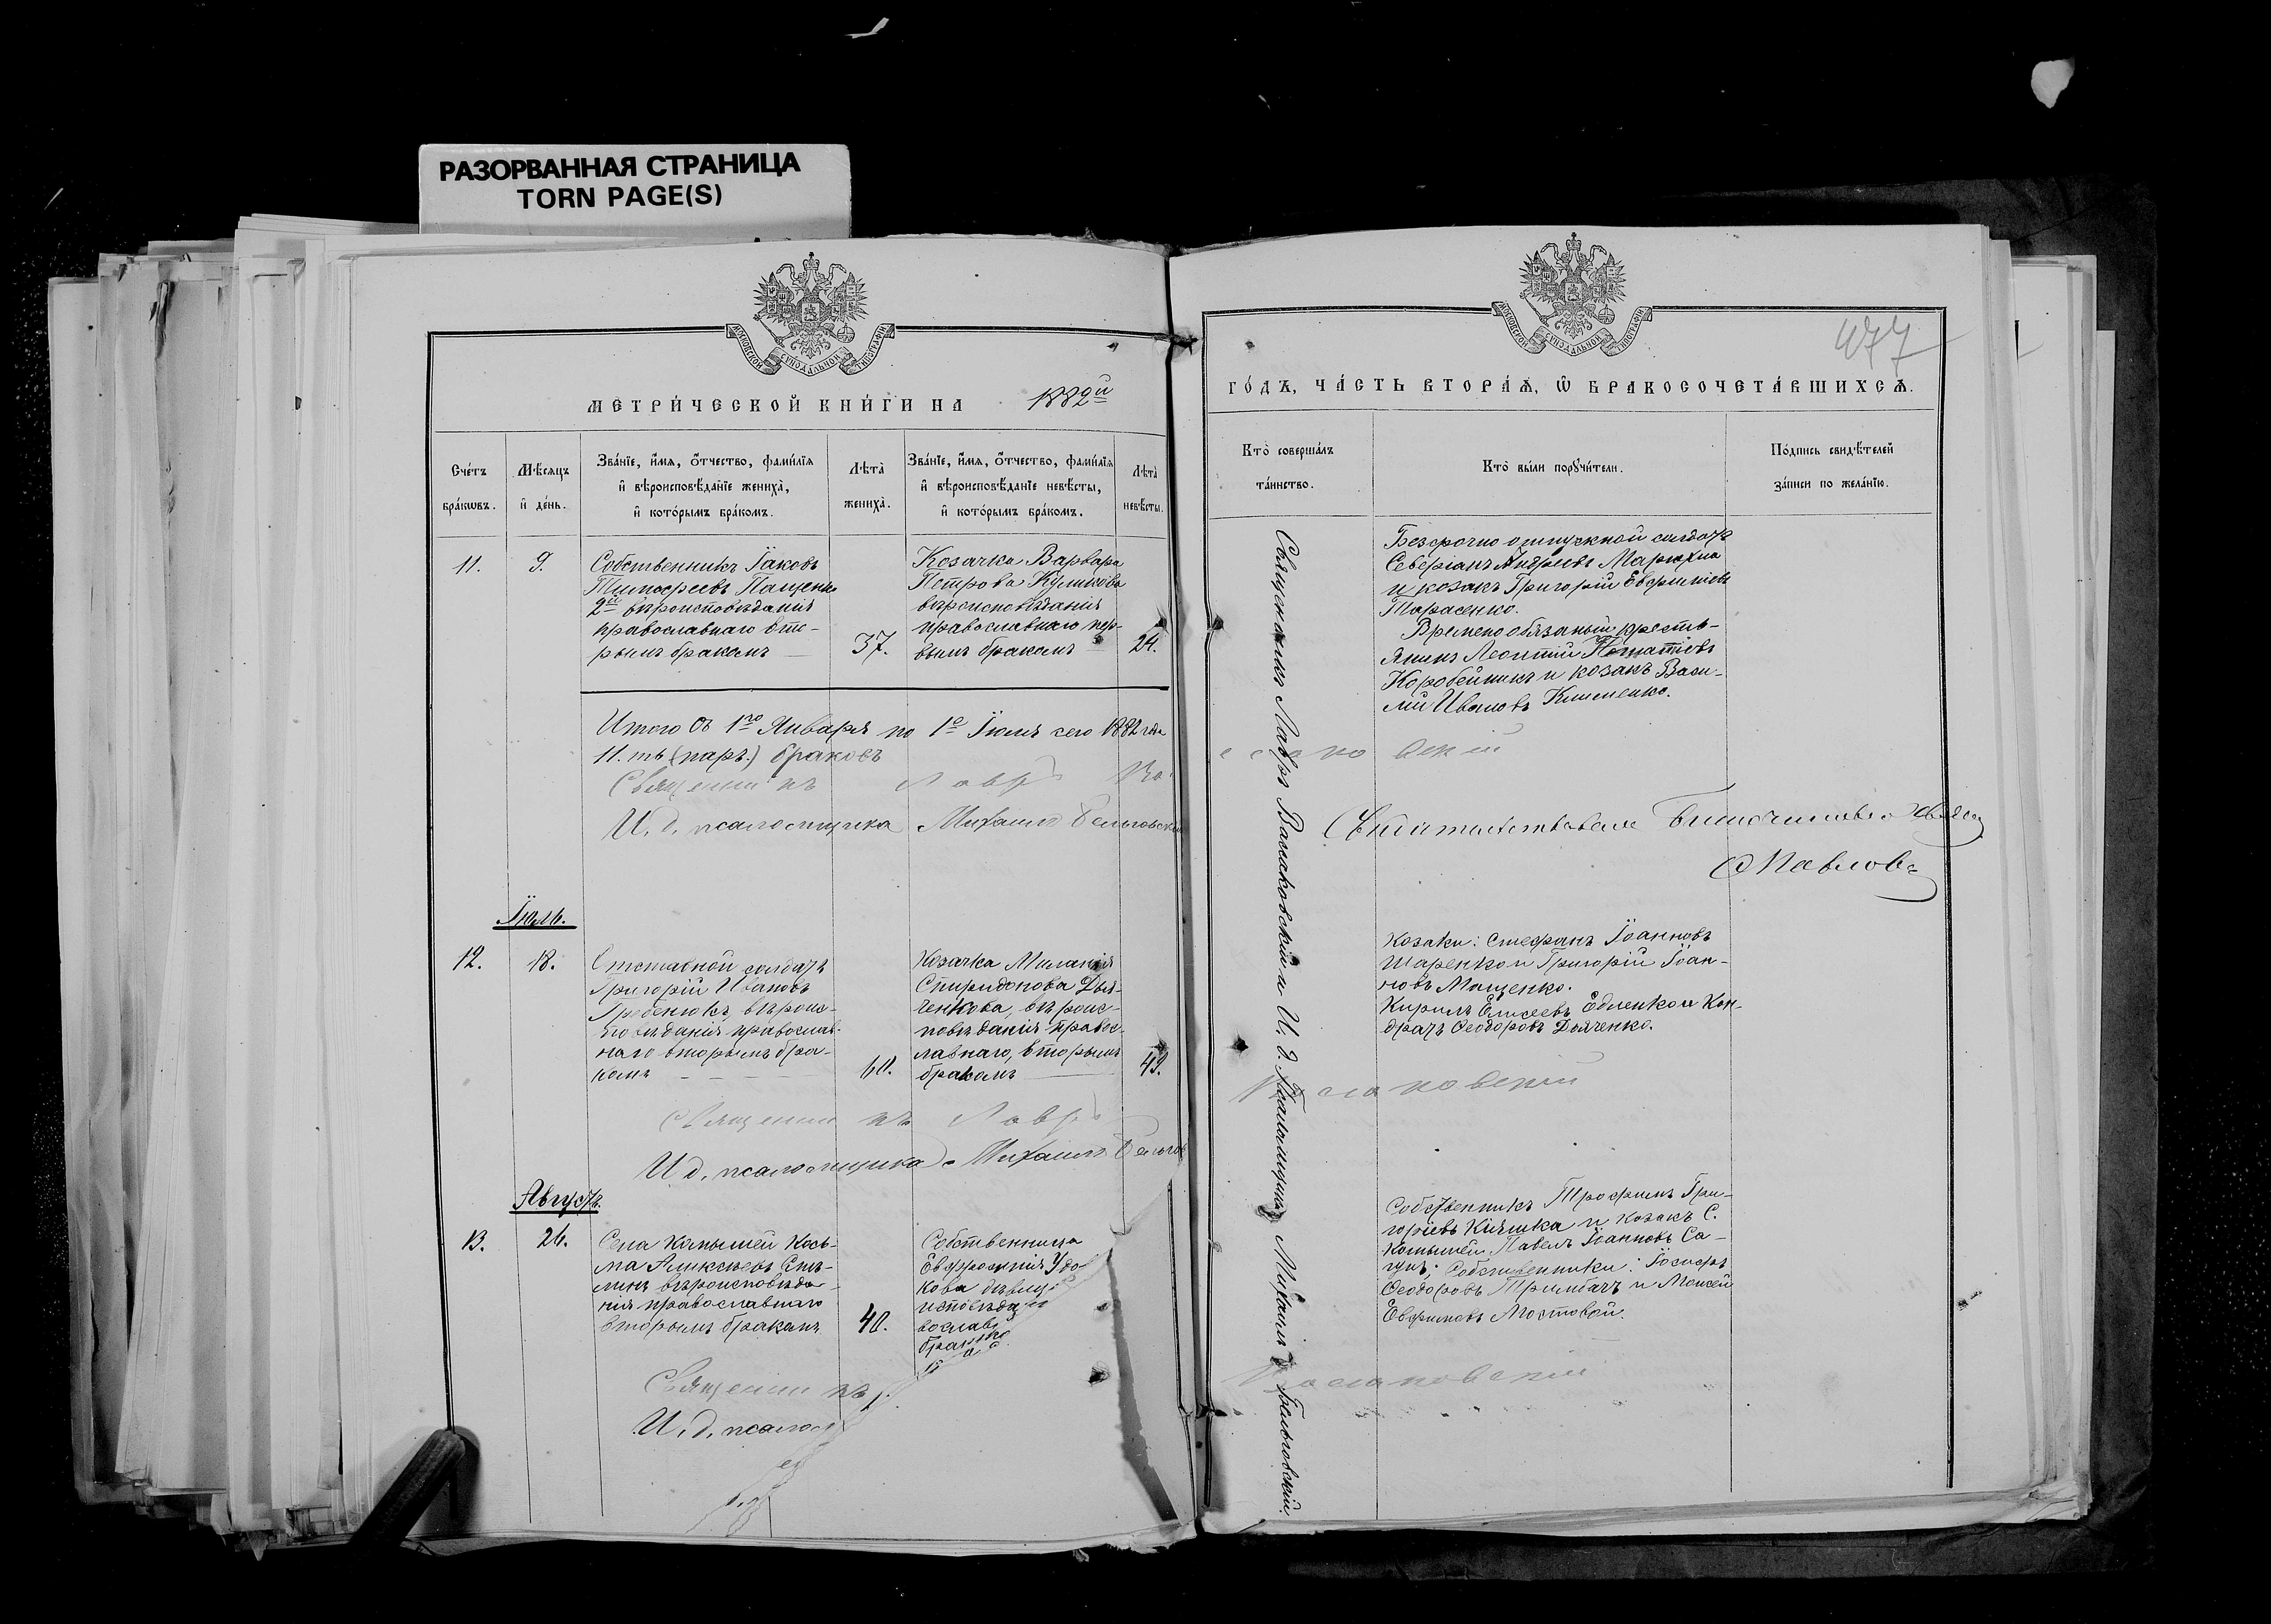 РАЗОРВАННАЯ СТРАНИЦА
TORN PAGE(S)
МОСКОВСКОЙ СѴНОДАЛЬНОЙ ТИПОГРАФІИ
МЕТРИ́ЧЕСКОЙ КНИ́ГИ НА 1882й
Сче́тъ бра́ковъ.
Мѣ́сяцъ и҆ де́нь.
Зва́нїе, и҆́мѧ, ѻ҆́тчество, фами́лїѧ и҆ вѣроисповѣ́данїе жениха̀, и҆ кото́рымъ бра́комъ.
Лѣта̀ жениха̀.
Зва́нїе, и҆́мѧ, ѻ҆́тчество, фами́лїѧ и҆ вѣроисповѣ́данїе невѣ́сты, и҆ кото́рымъ бра́комъ.
Лѣта̀ невѣ́сты.
11.
9.
Собственникъ Іаковъ
Тимофеевъ Пащенко
2й вѣроисповѣданія
православнаго вто-
рымъ бракомъ
37.
Козачка Варвара
Петрова Куликова
вѣроисповѣданія
православнаго пер-
вымъ бракомъ
24.
Итого съ 1го Января по 1е Іюля сего 1882 года
11.ть (паръ.) браковъ
Священникъ Лавръ
И. д. псаломщика Михаилъ
Іюль.
12.
18.
Отставной солдатъ
Григорій Ивановъ
Гребенюкъ, вѣроис-
повѣданія православ-
наго вторымъ бра-
комъ
60.
Козачка Миланія
Спиридонова Дья-
ченкова, вѣроис-
повѣданія правос-
лавнаго, вторымъ
бракомъ
49.
Священникъ Лавръ
И д. псаломщика Михаилъ
Августъ.
13.
26.
Села Камышей Кось-
ма Алексѣевъ
вѣроисповѣда-
нія православнаго
вторымъ бракомъ
40.
Собственница
Евфросинія Удо
кова дѣвиц
исповѣдан
вослав
брако
Священникъ
И. д. псалом
МОСКОВСКОЙ СѴНОДАЛЬНОЙ ТИПОГРАФІИ
477
ГО́ДЪ, ЧА́СТЬ ВТОРА́Ѧ, Ѡ҆ БРАКОСОЧЕТА́ВШИХСѦ.
Кто̀ соверша́лъ та́инство.
Кто̀ бы́ли порꙋчи́тели.
По́дпись свидѣ́телей за́писи по жела́нїю.
Священникъ Лавръ и И. д. Псаломщика Михаилъ
Безсрочно отпускной солдатъ
Северіанъ Андреевъ
и козакъ Григорій Евфиміевъ
Тарасенко.
Временно обязаный кресть-
янинъ Леонтій Игнатіевъ
Коробейникъ и козакъ Васи-
лій Ивановъ Клименко.
Свидѣтельствовалъ
Павловъ
Козаки: Стефанъ Іоанновъ
Шаренко и Григорій Іоан-
новъ Мащенко.
Кирилъ Елисеевъ Едленко и Кон-
дратъ Феодоровъ Дьяченко.
Собственникъ Трофимъ Гри-
горіевъ Кияшка и козакъ С.
Камышей Павелъ Іоанновъ Са-
Собственники: Іосифъ
Феодоровъ Тримбачъ и Моисей
Евфимовъ Мостовой.